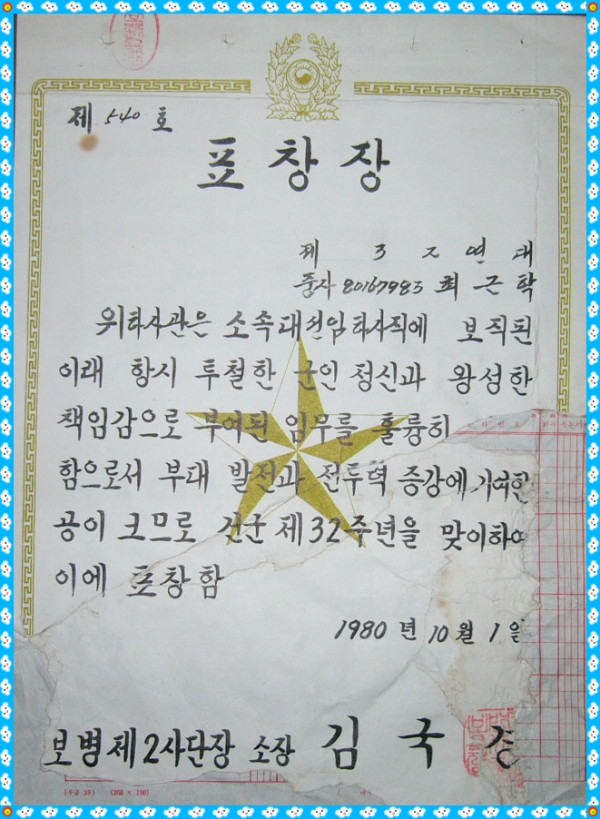 제 540 호
표 창 장
제 3 2 연 대
중사 80167983 최 근 학
위 하사관은 소속대 선임하사직에 보직된
이래 항시 투철한 군인정신과 왕성한
책임감으로 부여된 임무를 훌륭히
함으로서 부대 발전과 전투력 증강에 기여한
공이 크므로 건군 제 32주년을 맞이하여
이에 표창함
1980 년 10 월 1 일
보병제2사단장 소장 김 국